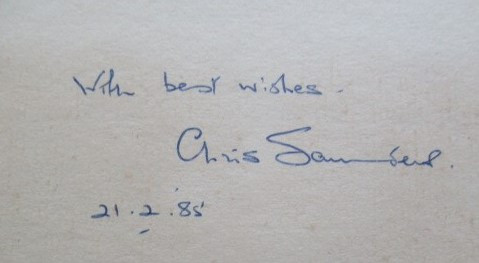 With best wishes.
Chris Saunders.
21.2.85